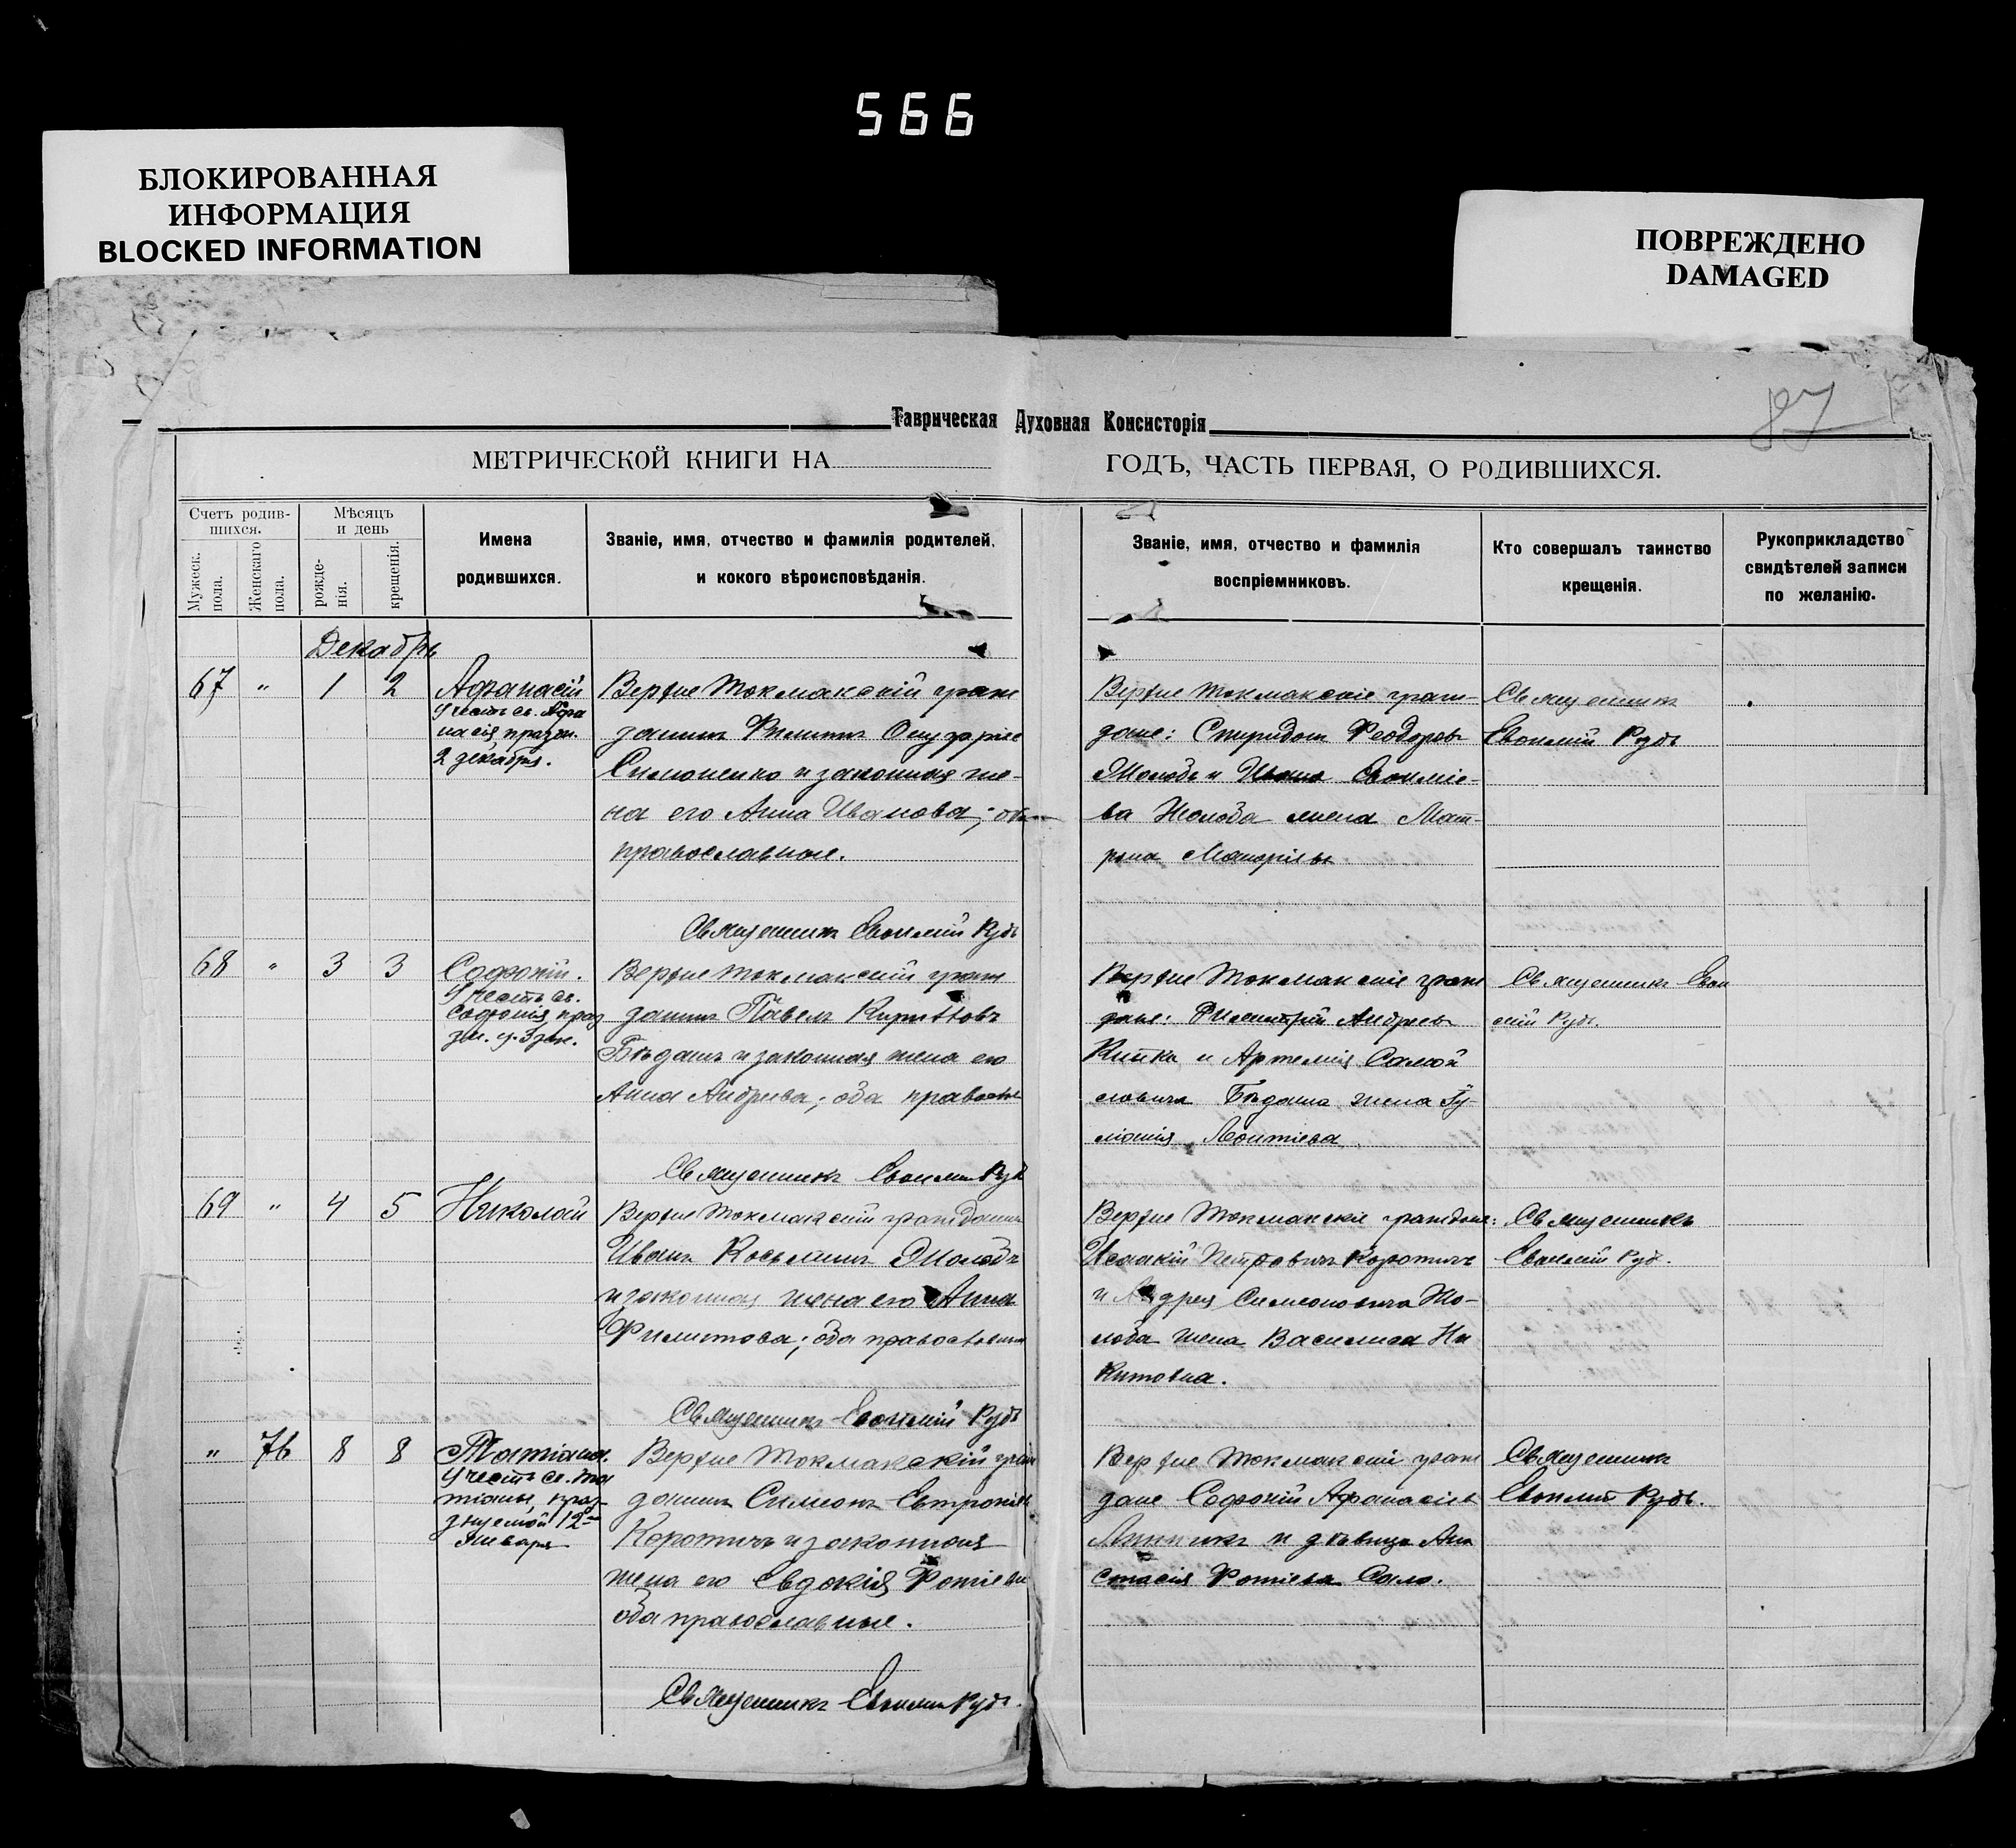 566
БЛОКИРОВАННАЯ
ИНФОРМАЦИЯ
BLOCKED INFORMATION
ПОВРЕЖДЕНО
DAMAGED
87
Таврическая Духовная Консисторія
МЕТРИЧЕСКОЙ КНИГИ НА ГОДЪ, ЧАСТЬ ПЕРВАЯ, О РОДИВШИХСЯ.
Счетъ родив-
шихся.
Мужеск.
пола.
Женскаго
пола.
Мѣсяцъ
и день
рожде-
нія.
крещенія.
Имена
родившихся.
Званіе, имя, отчество и фамилія родителей,
и кокого вѣроисповѣданія.
Званіе, имя, отчество и фамилія
воспріемниковъ.
Кто совершалъ таинство
крещенія.
Рукоприкладство
свидѣтелей записи
по желанію.
Декабрь
67 " 1 2
Афанасій
Учесть св. Афа
насія празн.
2 декабря.
Верхне Токмакскій граж
данинъ Филиппъ
Симоненко и законная же-
на его Анна Иванова;
православные.
Священникъ Евфимій Рудь
Верхне Токмакскіе граж-
дане: Спиридонъ Феодоровъ
Жолобъ и Ивана Евфиміе-
ва Жолоба жена Мат-
рона
Священникъ
Евфимій Рудь
68 " 3 3
Софоній.
Учесть св.
Софонія праз
дн. 3 дек.
Верхне Токмакскій граж
данинъ Павелъ Кирилловъ
Бѣдашъ и законная жена его
Анна Андреева; оба
Священникъ Евфимій Рудь
Верхне Токмакскіе граж
дане: Андреевъ
и Артемія Самой
ловича Бѣдаша жена Іу-
ліанія Леонтіева
Священникъ Евфи
мій Рудь.
69 " 4 5
Николай
Верхне Токмакскій гражданинъ
Иванъ Косьминъ Жолобъ
и законная жена его Анна
Филиппова; оба православные
Священникъ Евфимій Рудь
Верхне Токмакскіе граждане:
Исаакій Петровичъ Коротичъ
и Андрея Симеоновича Жо-
лоба жена Василиса Ни
китовна.
Священникъ
Евфимій Рудь.
" 76 8 8
Татіана.
Учесть св. Та
тіаны, праз-
днуемой 12го
Января
Верхне Токмакскій граж
данинъ Симеонъ Евтропіевъ
Коротичъ и законная
жена его Евдокія Фотіева
оба православные.
Священникъ Евфимій Рудь.
Верхне Токмакскій граж
дане Софоній Афанасіевъ
и дѣвица Ана
стасія Фотіева Сало.
Священникъ
Евфимій Рудь.